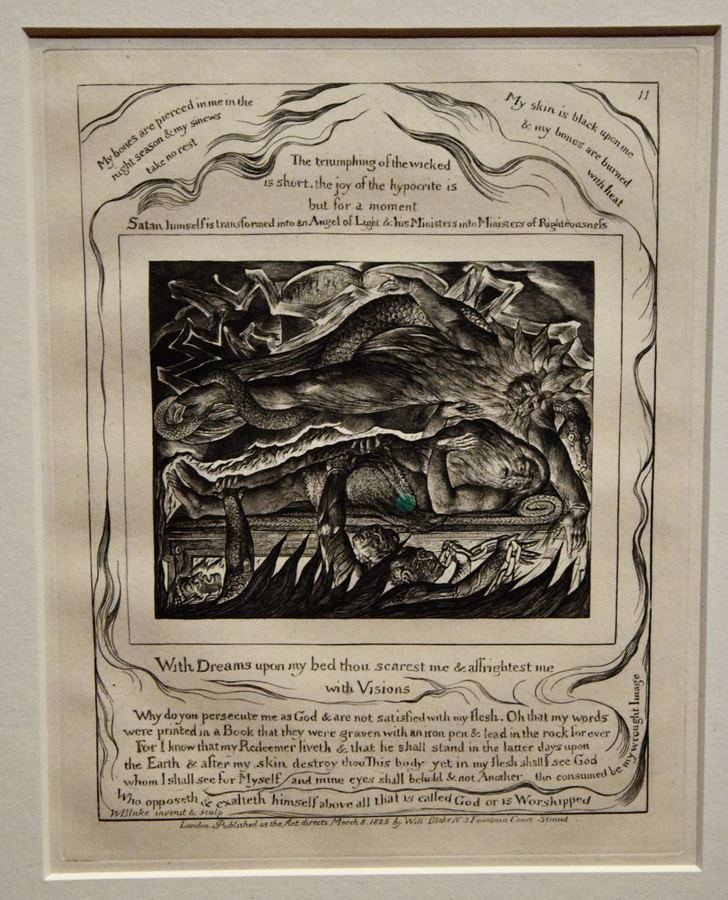 11
My bones are pierced in me in the
night season & my sinews
take no rest
My skin is black upon me
& my bones are burned
with heat
The triumphing of the wicked
is short, the joy of the hypocrite is
but for a moment
Satan himself is transformed into an Angel of Light & his Ministers into Ministers of Righteousness
With Dreams upon my bed thou scarest me & affrightest me
with Visions
Why do you persecute me as God & are not satisfied with my flesh. Oh that my words
were printed in a Book that they were graven with an iron pen & lead in the rock for ever
For I know that my Redeemer liveth & that he shall stand in the latter days upon
the Earth & after my skin destroy thou This body yet in my flesh shall I see God
whom I shall see for Myself and mine eyes shall behold & not Another tho consumed be my wrought Image
Who opposeth & exalteth himself above all that is called God or is Worshipped
WBlake invenit & sculp
London. Published as the Act directs March 8. 1825 by Will Blake N 3 Fountain Court Strand